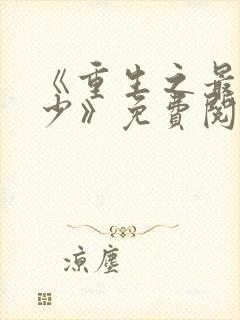 《重生之最
少》免費閱
涼塵